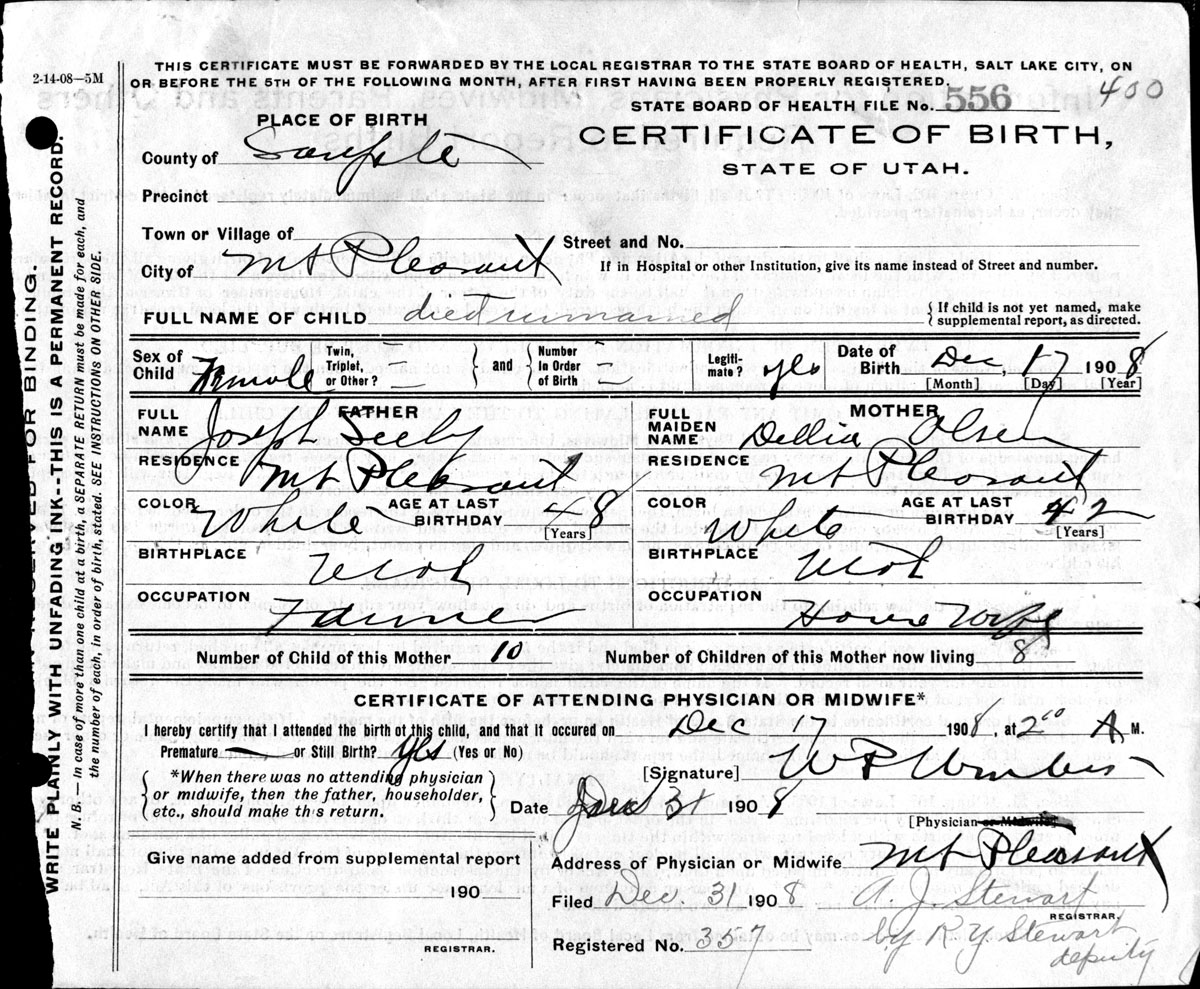 2-14-08—5M
THIS CERTIFICATE MUST BE FORWARDED BY THE LOCAL REGISTRAR TO THE STATE BOARD OF HEALTH, SALT LAKE CITY, ON
OR BEFORE THE 5TH OF THE FOLLOWING MONTH, AFTER FIRST HAVING BEEN PROPERLY REGISTERED.
STATE BOARD OF HEALTH FILE No. 556 400
PLACE OF BIRTH
CERTIFICATE OF BIRTH,
STATE OF UTAH.
County of Sanpete
Precinct
Town or Village of
Street and No.
City of Mt Pleasant
If in Hospital or other Institution, give its name instead of Street and number.
FULL NAME OF CHILD died unnamed
{If child is not yet named, make supplemental report, as directed.
Sex of Child Female
Twin, Triplet, or Other? =
and
Number In Order of Birth =
Legitimate? yes
Date of Birth Dec 17 1908
[Month] [Day] [Year]
FATHER
FULL NAME Joseph Seely
RESIDENCE Mt Pleasant
COLOR White AGE AT LAST BIRTHDAY 48 [Years]
BIRTHPLACE Utah
OCCUPATION Farmer
MOTHER
FULL MAIDEN NAME Dellia Olsen
RESIDENCE Mt Pleasant
COLOR White AGE AT LAST BIRTHDAY 42 [Years]
BIRTHPLACE Utah
OCCUPATION House Wife
Number of Child of this Mother 10 Number of Children of this Mother now living 8
CERTIFICATE OF ATTENDING PHYSICIAN OR MIDWIFE*
I hereby certify that I attended the birth of this child, and that it occured on Dec 17 1908, at 2 00 A M.
Premature — or Still Birth? yes (Yes or No)
*When there was no attending physician
or midwife, then the father, householder,
etc., should make this return.
[Signature] W P
Date Dec 31 1908
[Physician or Midwife]
Give name added from supplemental report
190
REGISTRAR.
Address of Physician or Midwife Mt Pleasant
Filed Dec. 31 1908 A. J. Stewart
REGISTRAR.
Registered No. 357 by R Y Stewart
deputy
RESERVED FOR BINDING.
WRITE PLAINLY WITH UNFADING INK--THIS IS A PERMANENT RECORD.
N. B.—In case of more than one child at a birth, a SEPARATE RETURN must be made for each, and
the number of each, in order of birth, stated. SEE INSTRUCTIONS ON OTHER SIDE.